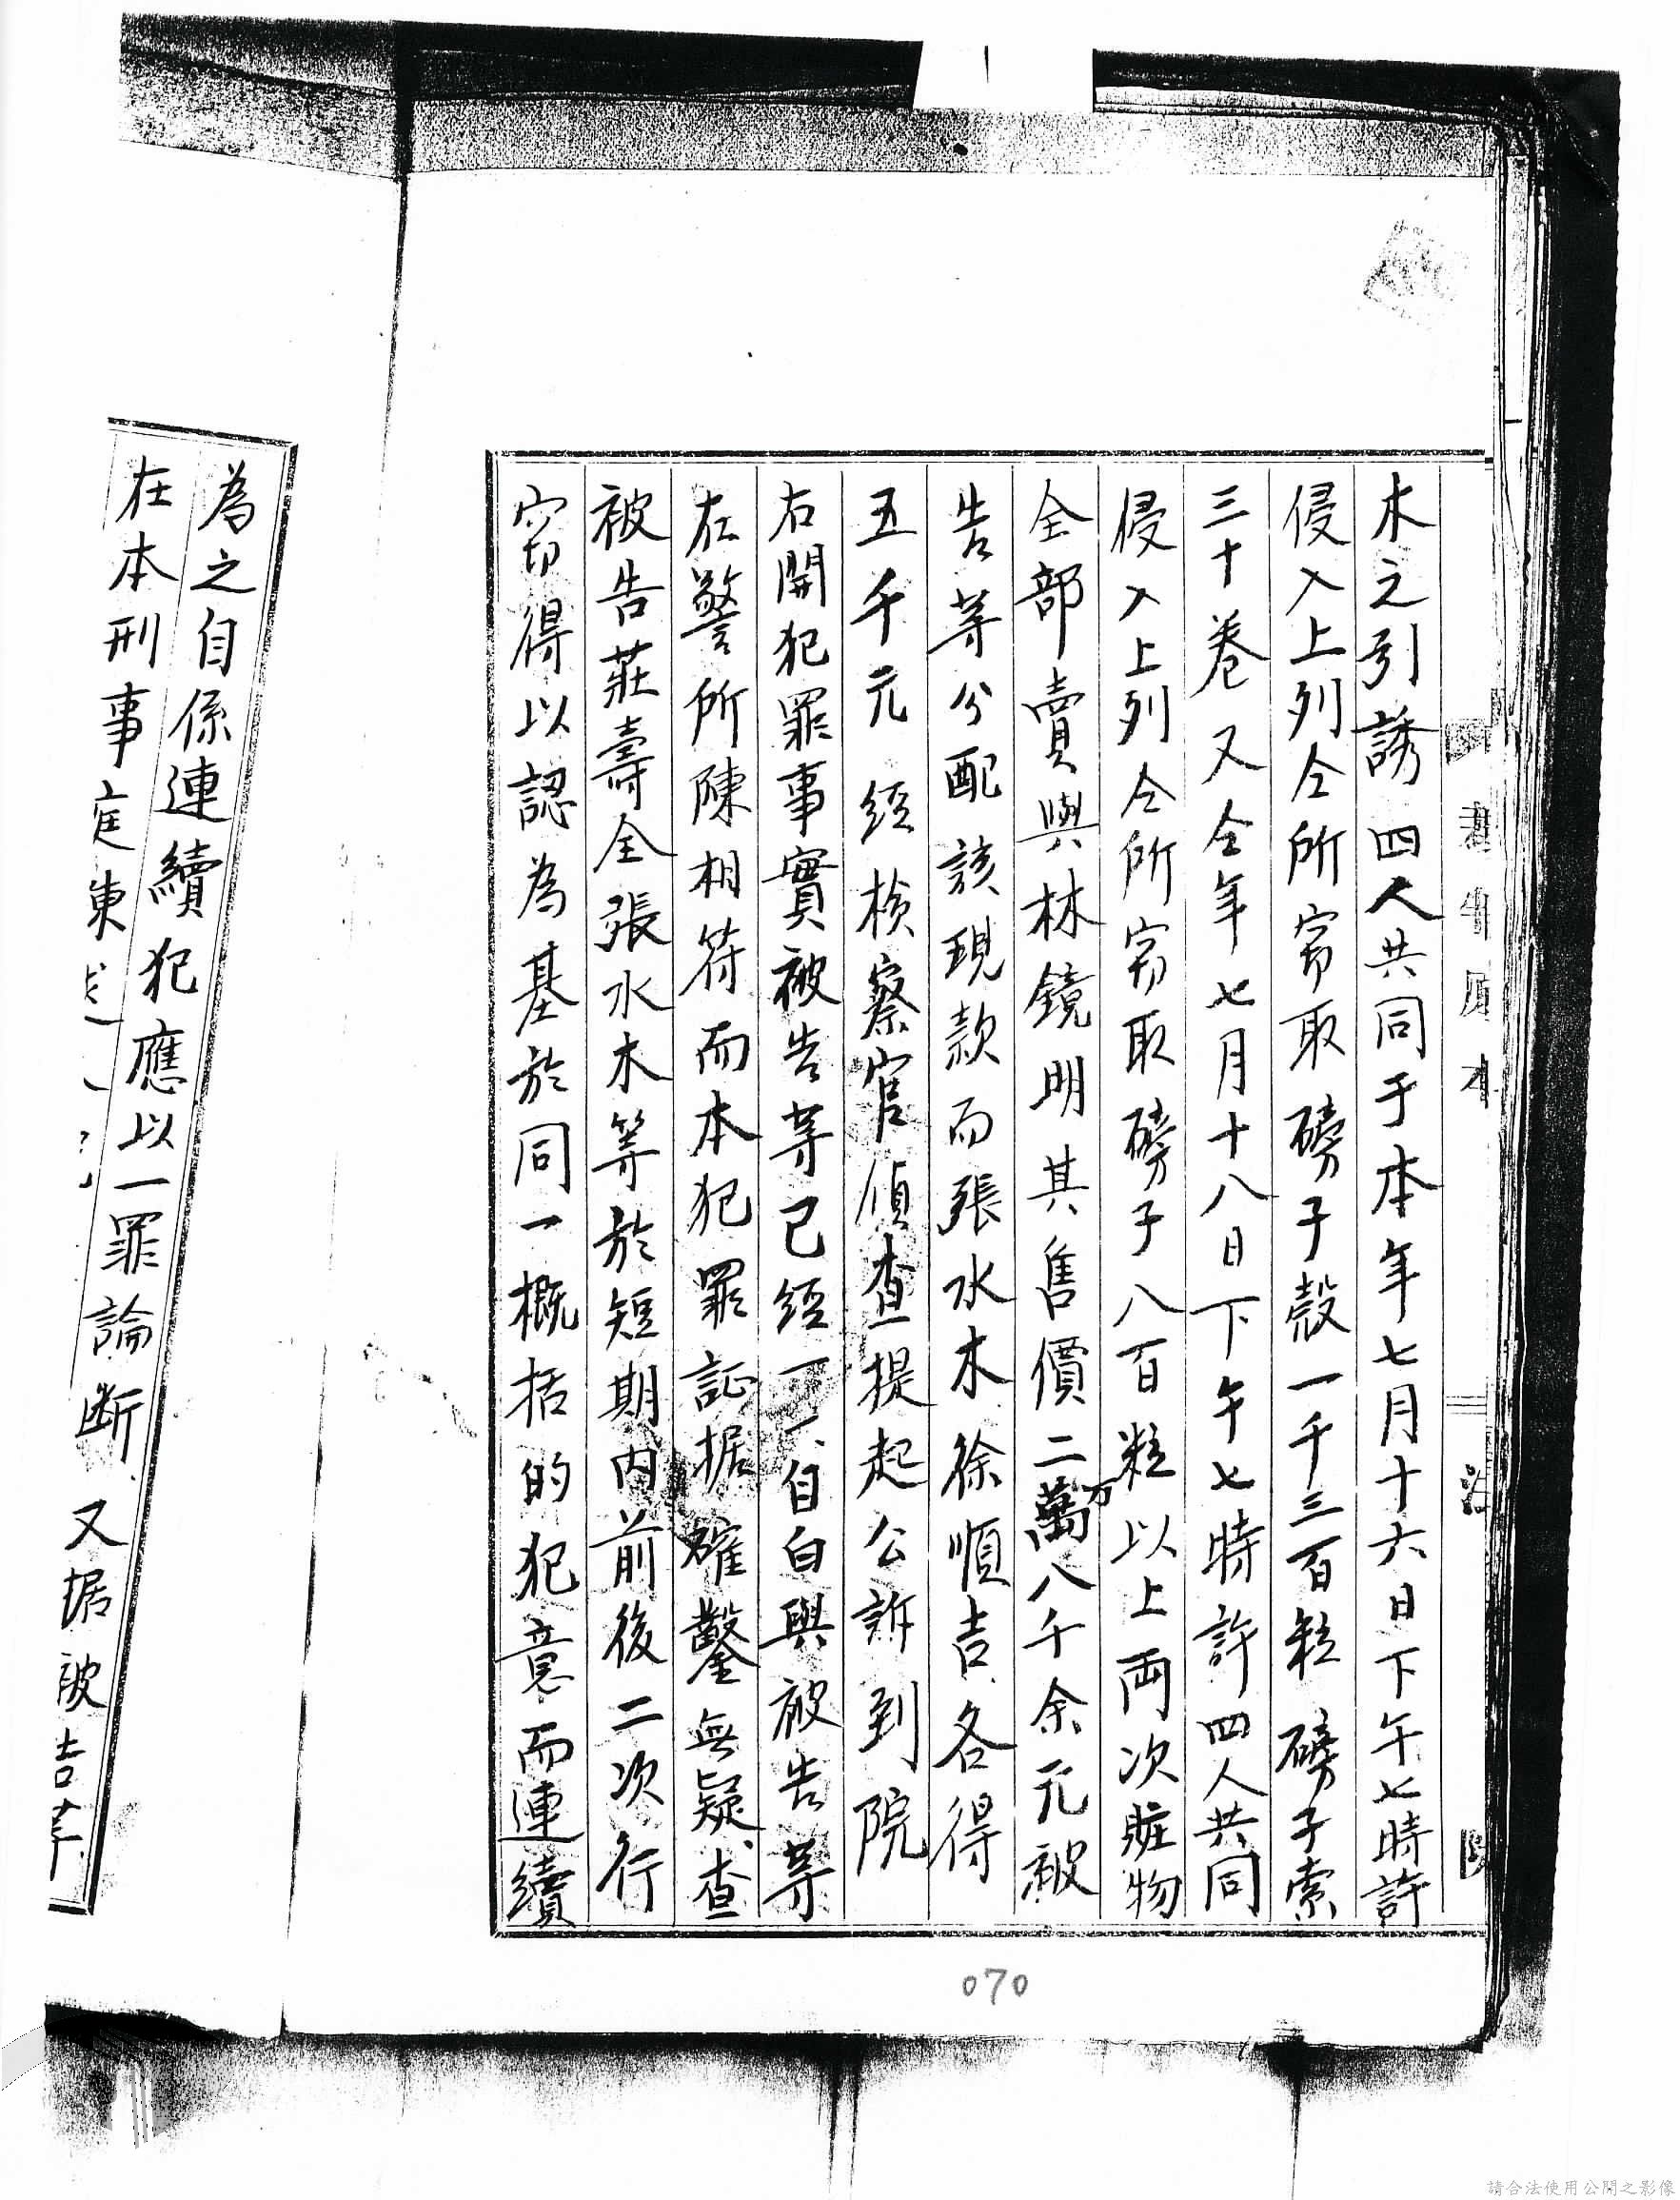 木之引誘四人共同于本年七月十六日下午七時許
侵入上列仝所窃取磅子殼一千三百粒磅子索
三十卷又仝年七月十八日下午七時許四人共同
侵入上列仝所窃取磅子八百粒以上両次賍物
全部賣與林鏡明其售價二萬八千余元被
告等分配該現款而張水木徐順吉各得
五千元經檢察官偵查提起公訴到院
右開犯罪事實被告等已經一一自白與被告等
在警所陳相符而本犯罪証据確鑿無疑、查
被告莊壽全張水木等於短期內前後二次行
窃得以認為基於同一概括的犯意而連續
為之自係連續犯應以一罪論断、又据被告等
在本刑事庭東
070
請合法使用公開之影像